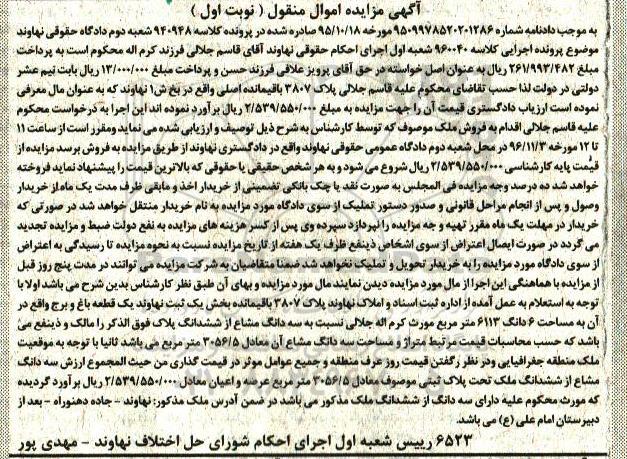 آگهی مزایده اموال منقول ( نوبت اول )
به موجب دادنامه شماره ۹۵۰۹۹۷۸۵۲۰۲۰۱۲۸۶ مورخه ۹۵/۱۰/۱۸ صادره شده در پرونده کلاسه ۹۴۰۹۴۸ شعبه دوم دادگاه حقوقی نهاوند
موضوع پرونده اجرایی کلاسه ۹۶۰۰۴۰ شعبه اول اجرای احکام حقوقی نهاوند آقای قاسم جلالی فرزند کرم اله محکوم است به پرداخت
مبلغ ۲۶۱/۹۹۳/۴۸۲ ریال به عنوان اصل خواسته در حق آقای پرویز علافی فرزند حسن و پرداخت مبلغ ۱۳/۰۰۰/۰۰۰ ریال بابت نیم عشر
دولتی در دولت لذا حسب تقاضای محکوم علیه قاسم جلالی پلاک ۳۸۰۷ باقیمانده اصلی واقع در بخش ۱ نهاوند که به عنوان مال معرفی
نموده است ارزیاب دادگستری قیمت آن را جهت مزایده به مبلغ ۲/۵۳۹/۵۵۰/۰۰۰ ریال برآورد نموده اند این اجرا به درخواست محکوم
علیه قاسم جلالی اقدام به فروش ملک موصوف که توسط کارشناس به شرح ذیل توصیف و ارزیابی شده می نماید و مقرر است از ساعت ۱۱
تا ۱۲ مورخه ۹۶/۱۱/۳ در محل شعبه دوم دادگاه عمومی حقوقی نهاوند واقع در دادگستری نهاوند از طریق مزایده به فروش برسد مزایده از
قیمت پایه کارشناسی ۲/۵۳۹/۵۵۰/۰۰۰ ریال شروع می شود و به هر شخص حقیقی یا حقوقی که بالاترین قیمت را پیشنهاد نماید فروخته
خواهد شد ده درصد وجه مزایده فی المجلس به صورت نقد یا چک بانکی تضمینی از خریدار اخذ و مابقی ظرف مدت یک ماه از خریدار
وصول و پس از انجام مراحل قانونی و صدور دستور تملیک از سوی دادگاه مورد مزایده به نام خریدار منتقل خواهد شد در صورتی که
خریدار در مهلت یک ماه مقرر تهیه و جه مزایده را نپردازد سپرده وی پس از کسر هزینه های مزایده به نفع دولت ضبط و مزایده تجدید
می گردد در صورت ایصال اعتراض از سوی اشخاص ذینفع ظرف یک هفته از تاریخ مزایده نسبت به نحوه مزایده تا رسیدگی به اعتراض
از سوی دادگاه مورد مزایده را به خریدار تحویل و تملیک نخواهد شد ضمنا متقاضیان به شرکت مزایده می توانند در مدت پنج روز قبل
از مزایده با هماهنگی این اجرا از مال مورد مزایده دیدن نمایند مال مورد مزایده و بهای آن طبق نظر کارشناس بدین شرح می باشد اولا با
توجه به استعلام به عمل آمده از اداره ثبت اسناد و املاک نهاوند پلاک ۳۸۰۷ باقیمانده بخش یک ثبت نهاوند یک قطعه باغ و برج واقع در
آن به مساحت ۶ دانگ ۶۱۱۳ متر مربع مورث کرم اله جلالی نسبت به سه دانگ مشاع از ششدانگ پلاک فوق الذکر را مالک و ذینفع می
باشد که حسب محاسبات قیمت مرتبط متراژ و مساحت سه دانگ مشاع آن معادل ۳۰۵۶/۵ متر مربع می باشد ثانیا با توجه به موقعیت
ملک منطقه جغرافیایی و در نظر رگفتن قیمت روز عرف منطقه و جمیع عوامل موثر در قیمت گذاری من حیث المجموع ارزش سه دانگ
مشاع از ششدانگ ملک تحت پلاک ثبتی موصوف معادل ۳۰۵۶/۵ متر مربع عرصه و اعیان معادل ۲/۵۳۹/۵۵۰/۰۰۰ ریال برآورد گردیده
که مورث محکوم علیه دارای سه دانگ از ششدانگ ملک مذکور می باشد در ضمن آدرس ملک مذکور: نهاوند - جاده دهنوراه - بعد از
دبیرستان امام علی (ع) می باشد.
۶۵۲۳ رییس شعبه اول اجرای احکام شورای حل اختلاف نهاوند - مهدی پور